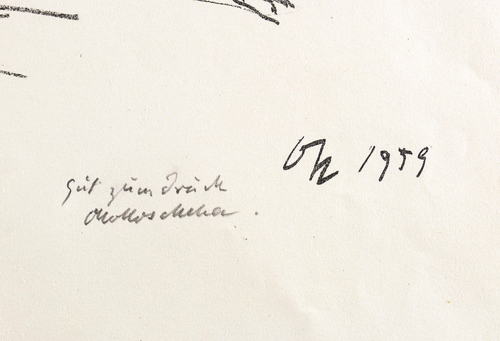 OK 1959
Gut zum Druck
OKokoschka.